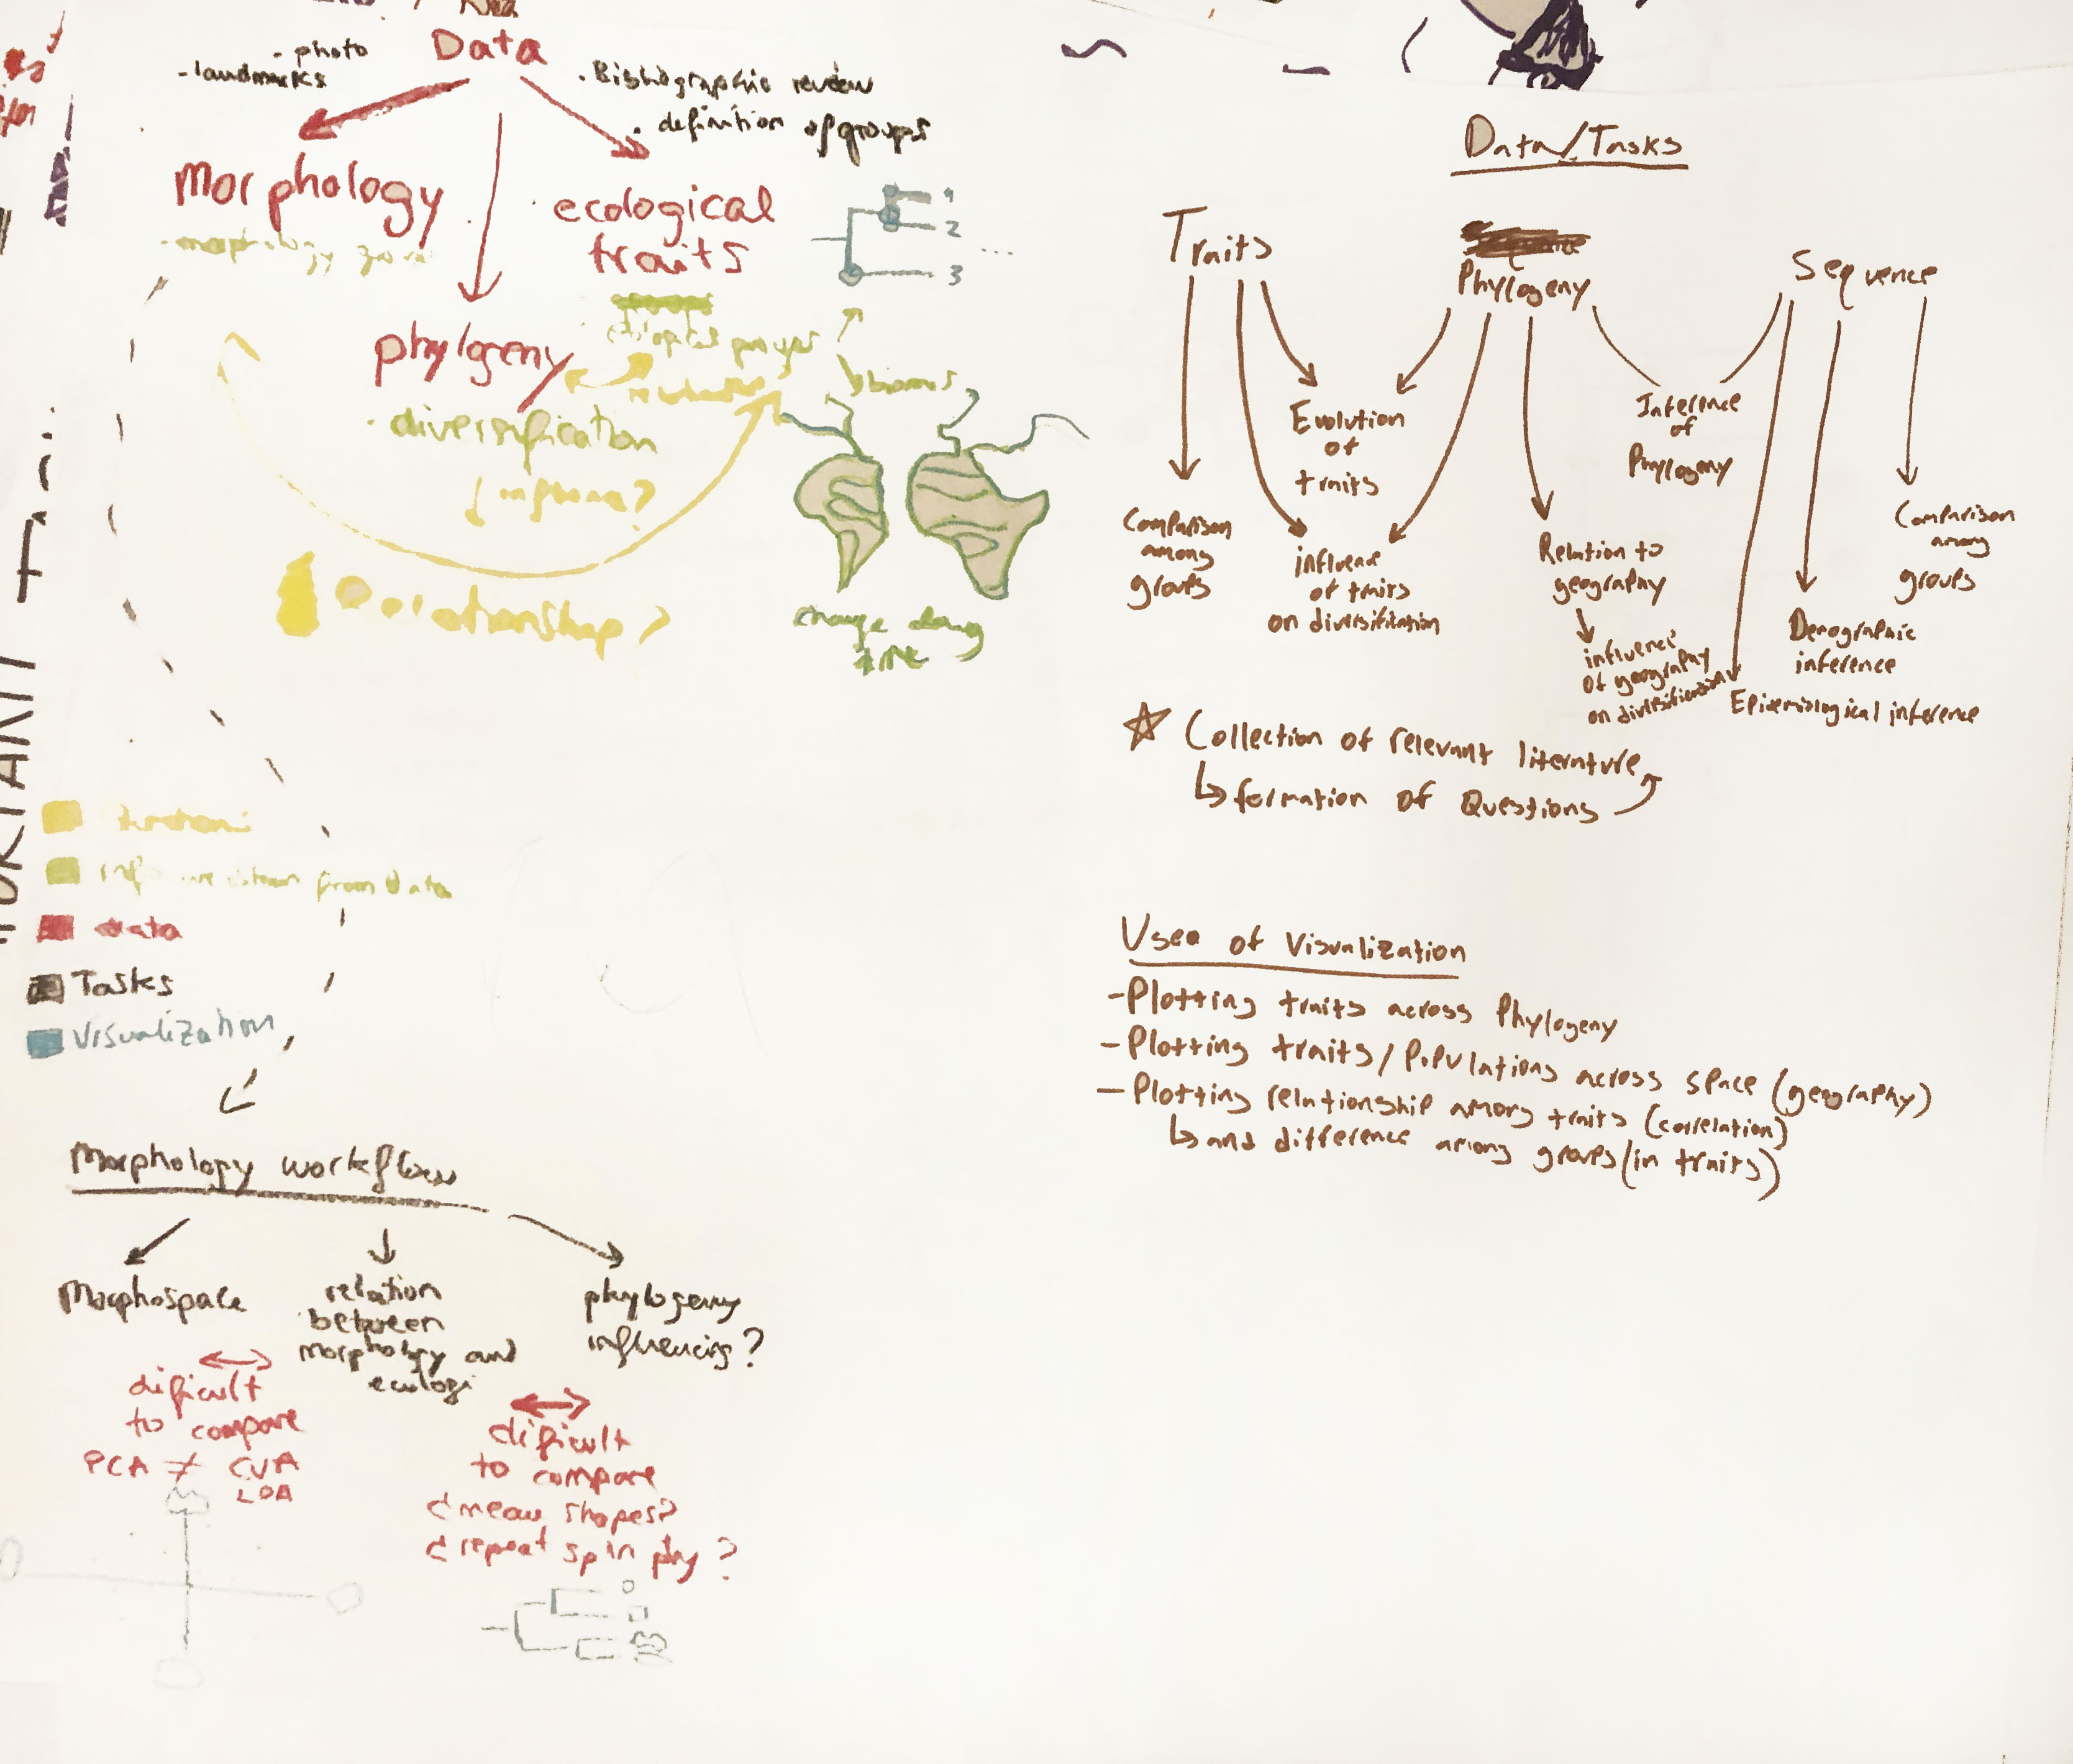 Data
- photo
- landmarks
. Bibliographic review
. definition of groups
Morphology
ecological
traits
1
2
3
phylgreny
biomes
. diversification
Relationship?
change along
time
from data
data
Tasks
Visualization
Morphology workflow
Morphospace
relation
between
morphology and
ecologi
phylogeny
influencing?
dificult
to compare
PCA ≠ CVA
LDA
dificult
to compare
¿mean shapes?
¿repeat sp in phy?
Data/Tasks
Traits
Phylogeny
Sequence
Evolution
of
traits
Inference
of
Phylogeny
Comparison
among
groups
influence
of traits
on diversification
Relation to
geography
influence
of geography
on diversification
Demographic
inference
Comparison
among
groups
Epidemiological inference
☆ Collection of relevant literature
↳ formation of Questions
Uses of Visualization
- Plotting traits across Phylogeny
- Plotting traits/Populations across space (geography)
- Plotting relationship among traits (correlation)
↳ and difference among groups (in traits)